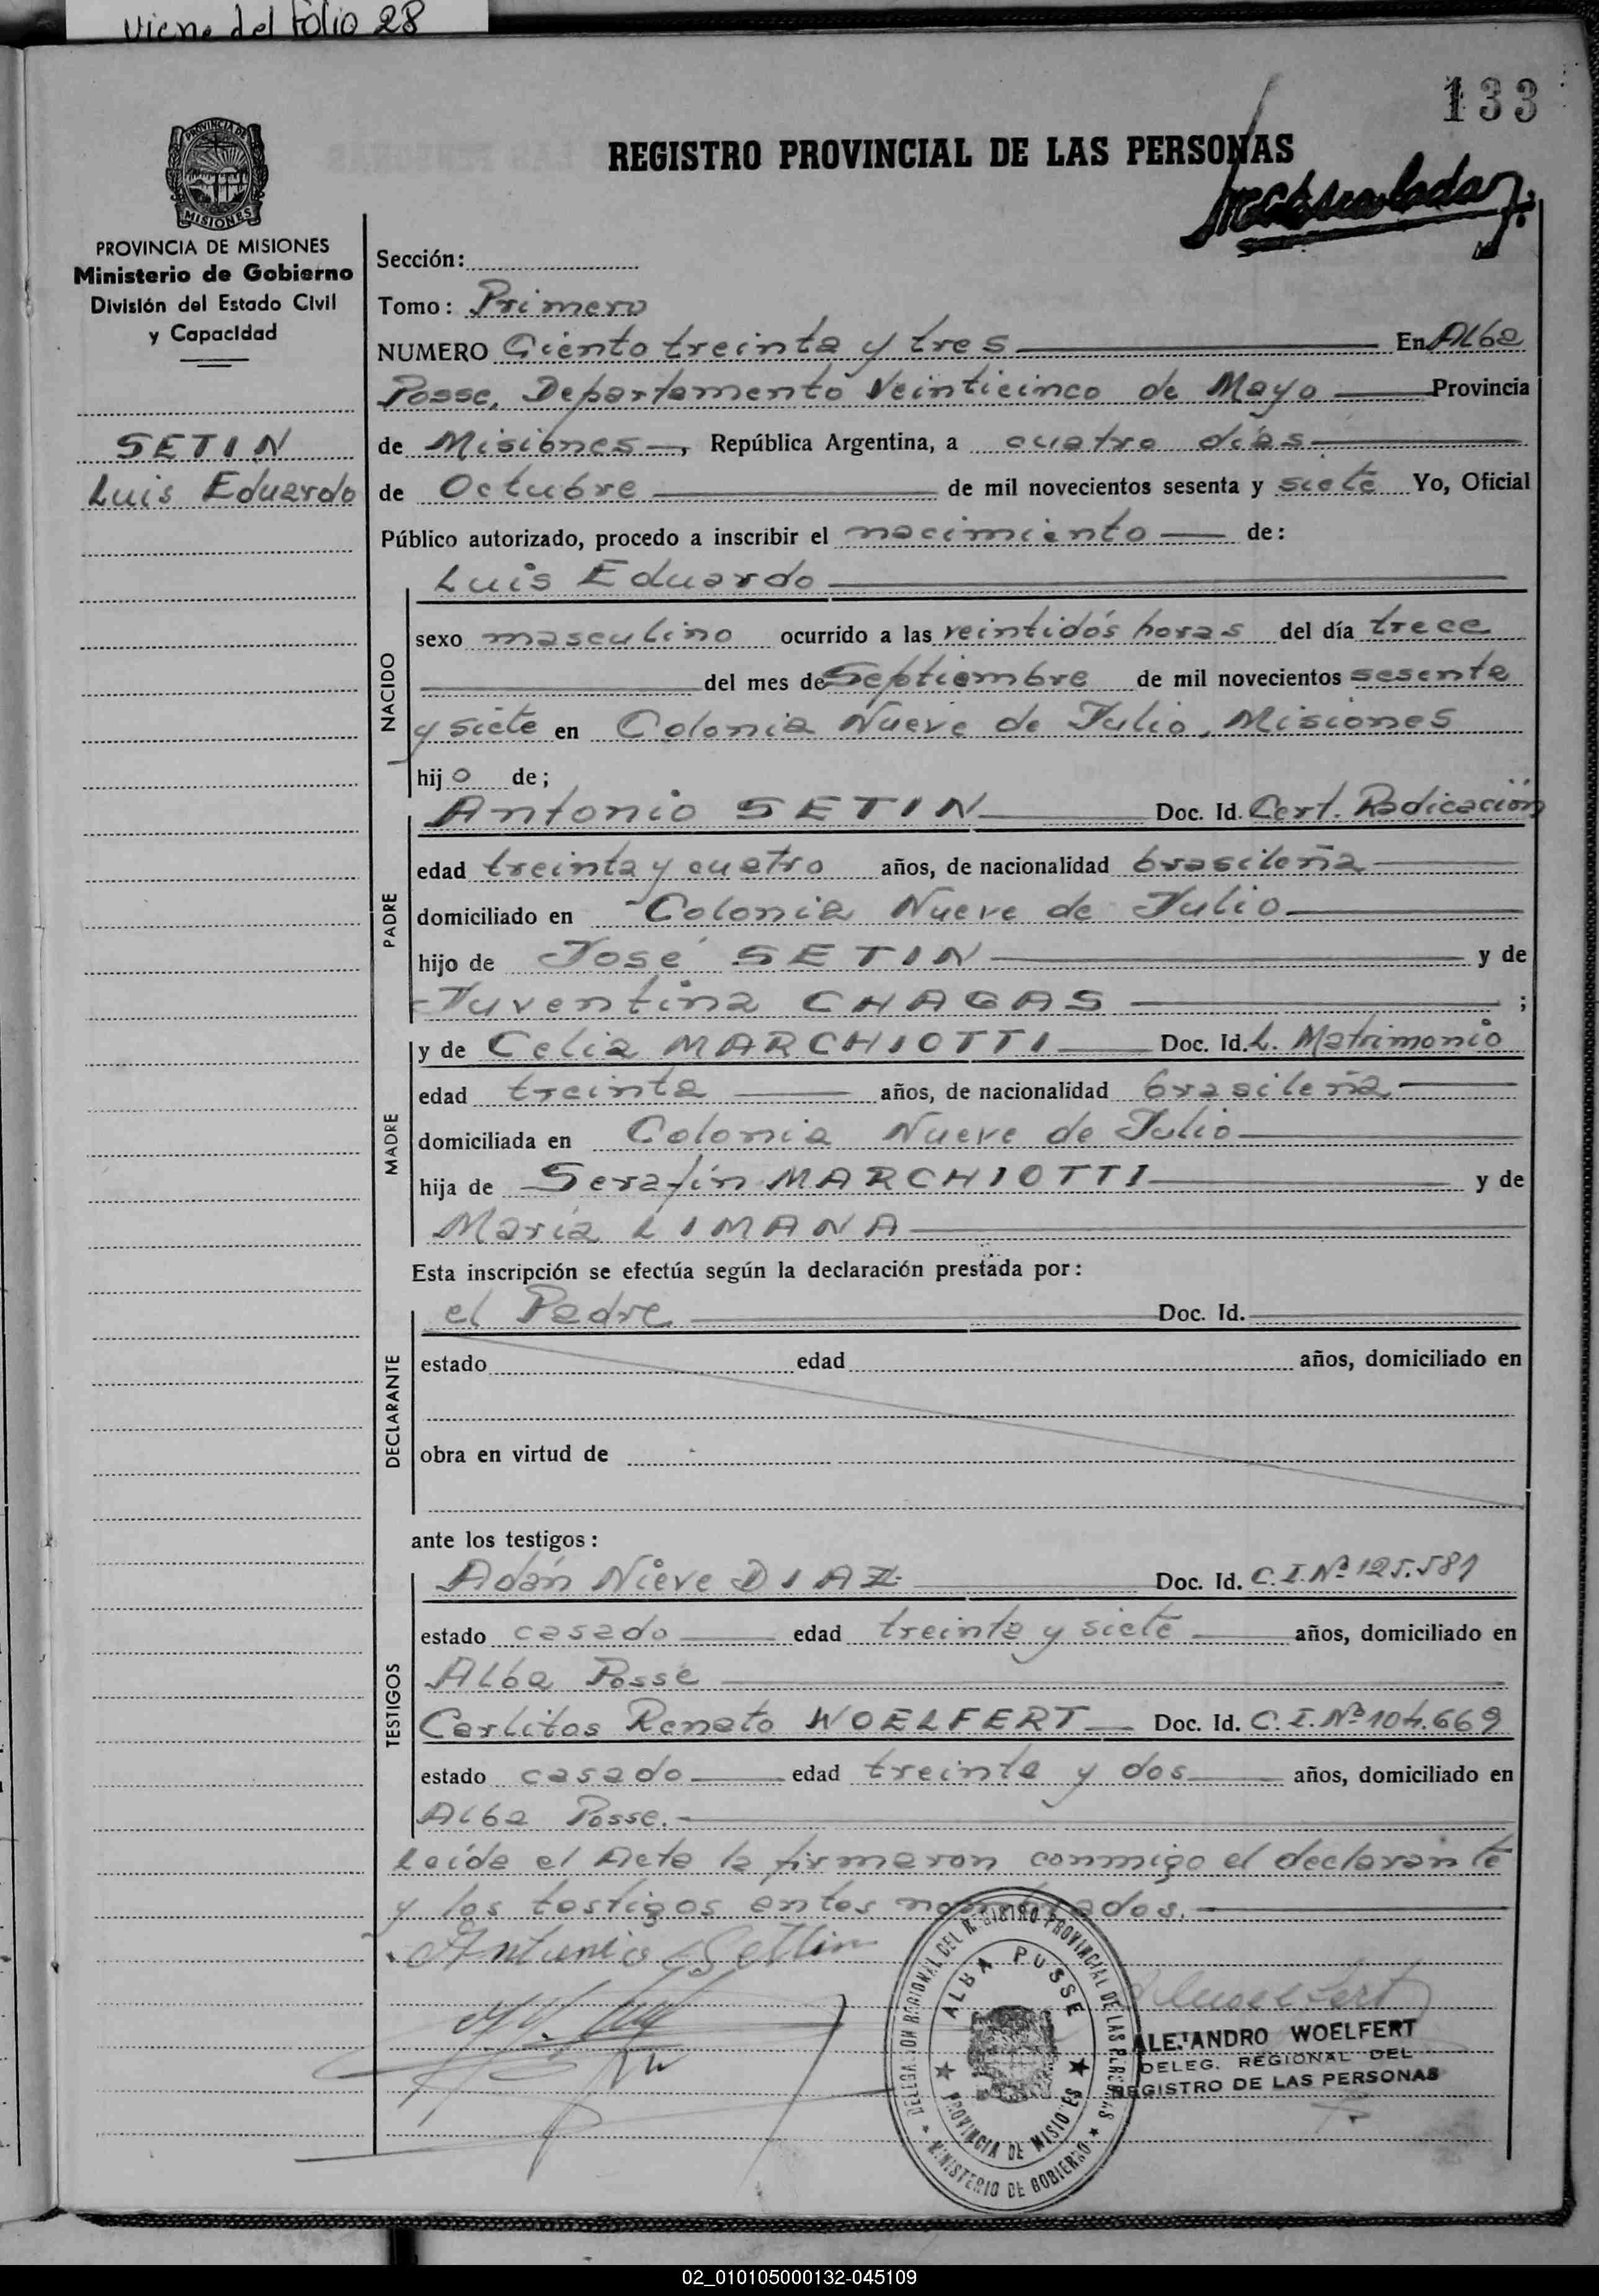 viene del folio 28
133
PROVINCIA DE
MISIONES
REGISTRO PROVINCIAL DE LAS PERSONAS
PROVINCIA DE MISIONES
Ministerio de Gobierno
División del Estado Civil
y Capacidad
SETIN
Luis Eduardo
Sección:
Tomo: Primero
NUMERO Ciento treinta y tres En Alba
Posse, Departamento Veinticinco de Mayo Provincia
de Misiones, República Argentina, a cuatro días
de Octubre de mil novecientos sesenta y siete Yo, Oficial
Público autorizado, procedo a inscribir el nacimiento de:
Luis Eduardo
NACIDO
sexo masculino ocurrido a las veintidós horas del día trece
del mes de Septiembre de mil novecientos sesenta
y siete en Colonia Nueve de Julio, Misiones
hijo de;
PADRE
Antonio SETIN Doc. Id. Cert. Radicación
edad treinta y cuatro años, de nacionalidad brasileña
domiciliado en Colonia Nueve de Julio
hijo de José SETIN y de
Juventina CHAGAS ;
MADRE
y de Celia MARCHIOTTI Doc. Id. L. Matrimonio
edad treinta años, de nacionalidad brasileña
domiciliada en Colonia Nueve de Julio
hija de Serafín MARCHIOTTI y de
María LIMANA
Esta inscripción se efectúa según la declaración prestada por:
DECLARANTE
el Padre Doc. Id.
estado edad años, domiciliado en
obra en virtud de
ante los testigos:
TESTIGOS
Adán Nieve DIAZ Doc. Id. C.I.Nº 125.581
estado casado edad treinta y siete años, domiciliado en
Alba Posse
Carlitos Renato WOELFERT Doc. Id. C.I.Nº 104.669
estado casado edad treinta y dos años, domiciliado en
Alba Posse.-
Leída el Acta la firmaron conmigo el declarante
y los testigos antes nombrados.
Antonio Settin
DELEGACION REGIONAL DEL REGISTRO PROVINCIAL DE LAS PERSONAS
ALBA POSSE
PROVINCIA DE MISIONES
MINISTERIO DE GOBIERNO
ALEJANDRO WOELFERT
DELEG. REGIONAL DEL
REGISTRO DE LAS PERSONAS
02_010105000132-045109